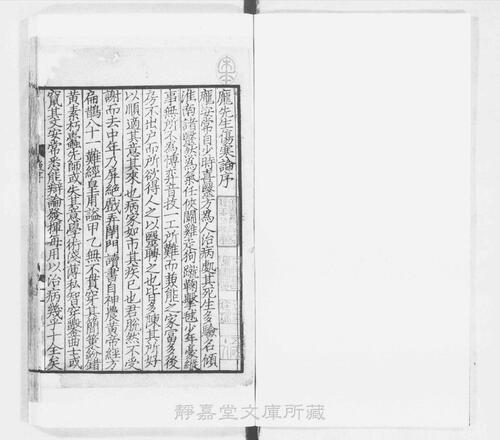 龐先生傷寒論序
龐安常自少時喜醫方為人治病處其死生多驗名傾
淮南諸醫然為氣任俠鬪雞走狗蹴鞠擊毬少年豪縱
事無所不為博弈音技一工所難而兼能之家富多後
房不出戶而所欲得人之以醫聘之也皆多陳其所好
以順適其意其來也病家如市其疾已也君脫然不受
謝而去中年乃屏絕戲弄閉門讀書自神農黃帝經方
扁鵲八十一難經皇甫謐甲乙無不貫穿其簡策紛錯
黃素朽蠹先師或失其意學術淺陋私智穿鑿曲士或
竄其文安常悉能辯論發揮每用以治病幾乎十全矣
靜嘉堂文庫所藏